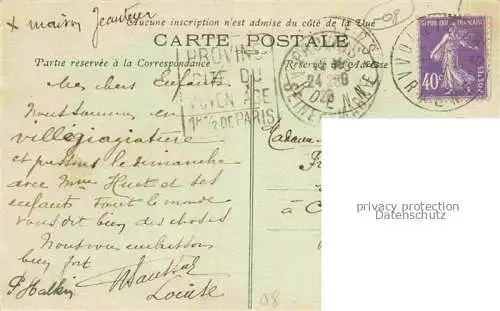 x maison
08
Aucune inscription n'est admise du côté de la Vue
CARTE POSTALE
Partie réservée à la Correspondance
Réservé
PROVINS
CITE DU
MOYEN AGE
DE PARIS
24
SEINE MARNE
REPUBLIQUE FRANCAISE
40c
POSTES
Mes chers Enfants
Nous sommes en
villégiature
et passons le dimanche
avec Mme Huet et ses
enfants tout le monde
vous dit bien des choses
Nous vous embrassons
bien fort
Louise
Madame
à
privacy protection
Datenschutz
08 -